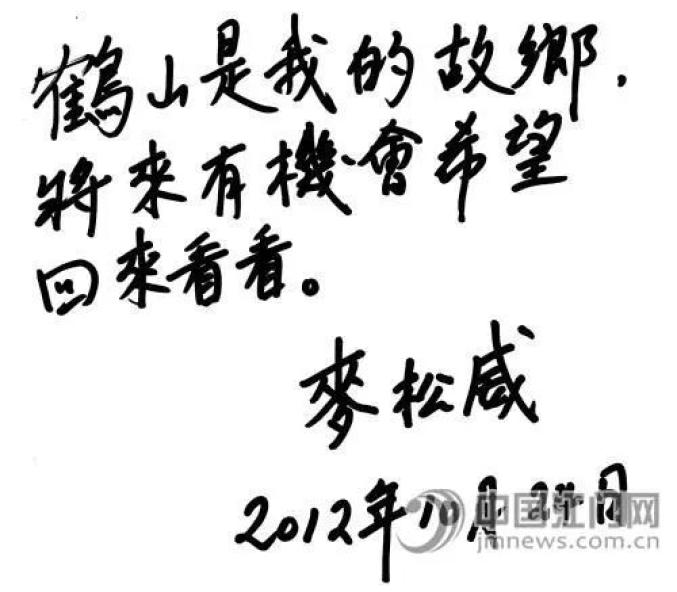 鶴山是我的故鄉，
將來有機會希望
回來看看。
麥松威
2012年10月24日
中国江门网
jmnews.com.cn